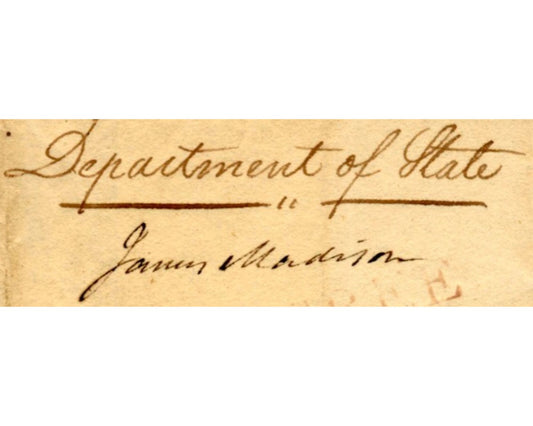 Department of State
"
James Madison
FREE